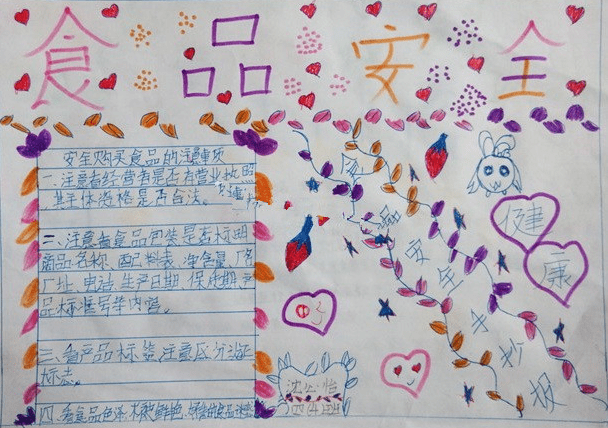 食品安全
安全购买食品的注意事项
一、注意看经营者是否有营业执照
其主体资格是否合法。
二、注意看食品包装是否标明
商品名称、配料表、净含量、厂名
厂址、电话、生产日期、保质期、产
品标准号等内容。
三、看产品标签，注意区分认证
标志。
四、看食品色泽
食品安全手抄报
健
康
四(4)班